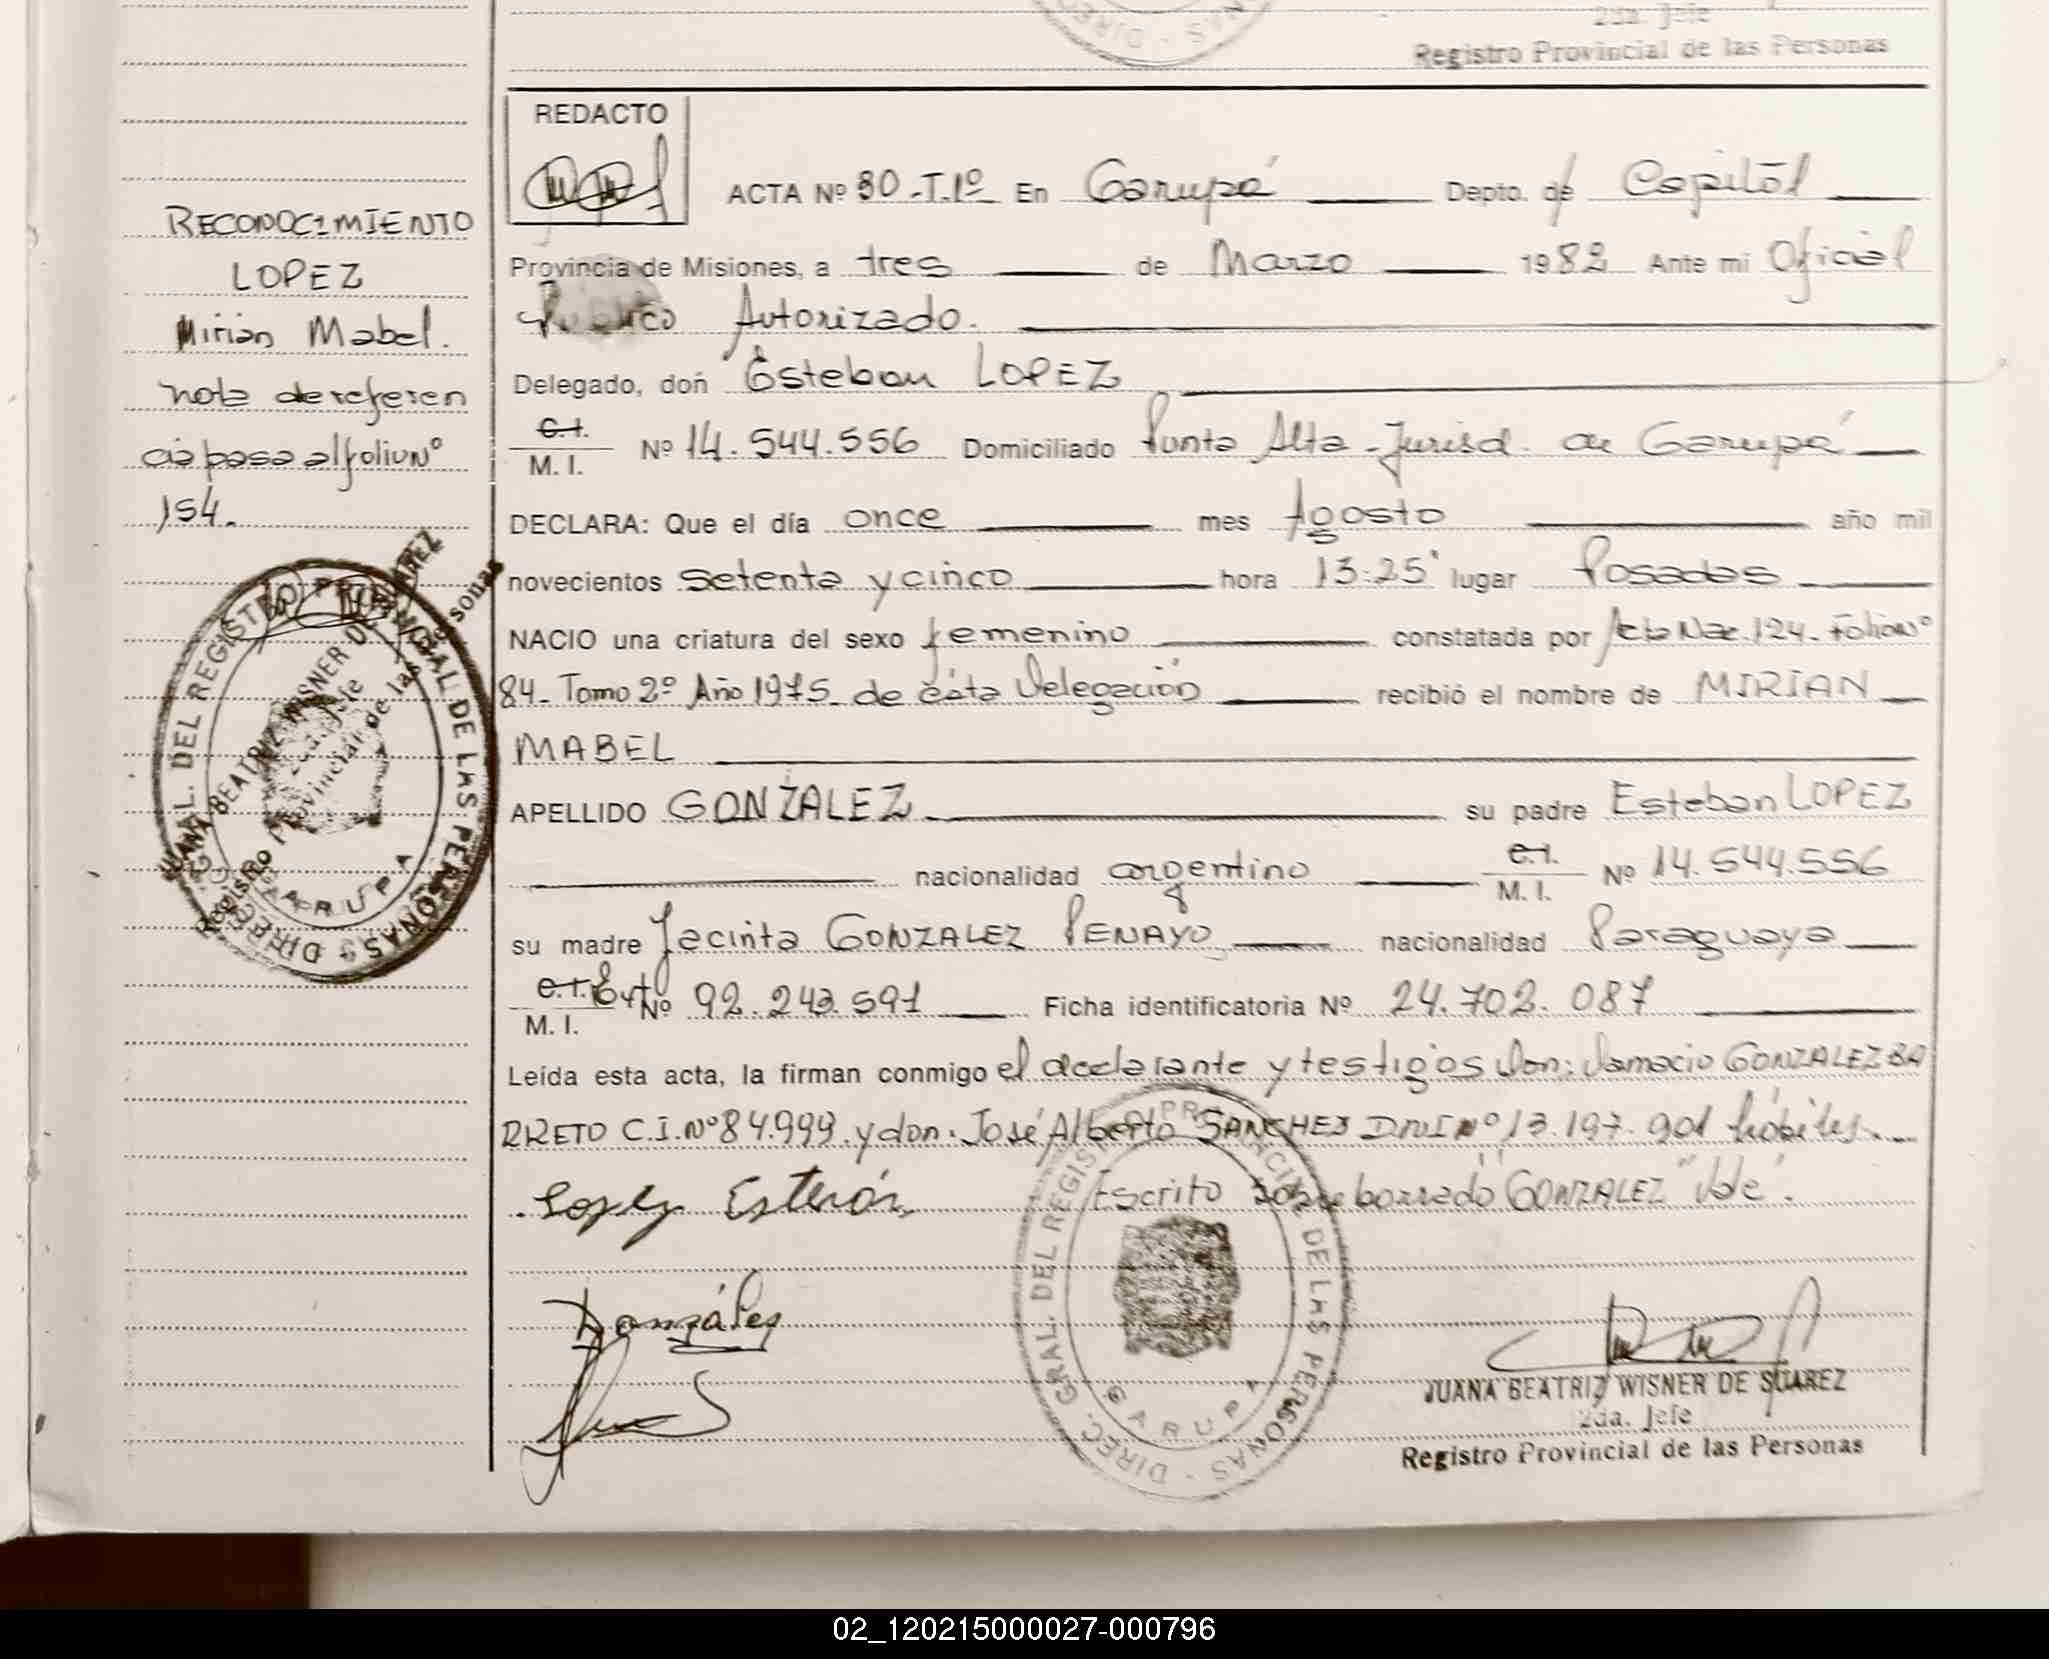 2da. Jefe
Registro Provincial de las Personas
RECONOCIMIENTO
LOPEZ
Mirian Mabel.
nota de referen
cia pasa al folio Nº
154.
REDACTO
ACTA Nº 80-T.1º En Garupá Depto. de Capital
Provincia de Misiones, a tres de Marzo 1982 Ante mi Oficial
Público Autorizado.
Delegado, don Esteban LOPEZ
C.I. M. I. Nº 14.544.556 Domiciliado Punta Alta - Jurisd. de Garupá
DECLARA: Que el día once mes Agosto año mil
novecientos setenta y cinco hora 13:25' lugar Posadas
NACIO una criatura del sexo femenino constatada por Acta Nac. 124. Folio Nº
84- Tomo 2º Año 1975- de ésta Delegación recibió el nombre de MIRIAN
MABEL
APELLIDO GONZALEZ su padre Esteban LOPEZ
nacionalidad argentino C.I. M. I. Nº 14.544.556
su madre Jacinta GONZALEZ PENAYO nacionalidad Paraguaya
C.I. Ext M. I. Nº 92.243.591 Ficha identificatoria Nº 24.702.087
Leída esta acta, la firman conmigo el declarante y testigos Don: Damacio GONZALEZ BA
RRETO C.I. Nº 84.999. y don: José Alberto SANCHEZ DNI Nº 13.197.901 hábiles.
Lopez Esteván
Escrito sobre borrado "GONZALEZ" Vale.
Gonzáles
DIREC. GRAL. DEL REGISTRO PROVINCIAL DE LAS PERSONAS
GARUPA
JUANA BEATRIZ WISNER DE SUAREZ
2da. Jefe
Registro Provincial de las Personas
DIREC. GRAL. DEL REGISTRO PROVINCIAL DE LAS PERSONAS
GARUPA
JUANA BEATRIZ WISNER DE SUAREZ
2da. Jefe
Registro Provincial de las Personas
02_120215000027-000796